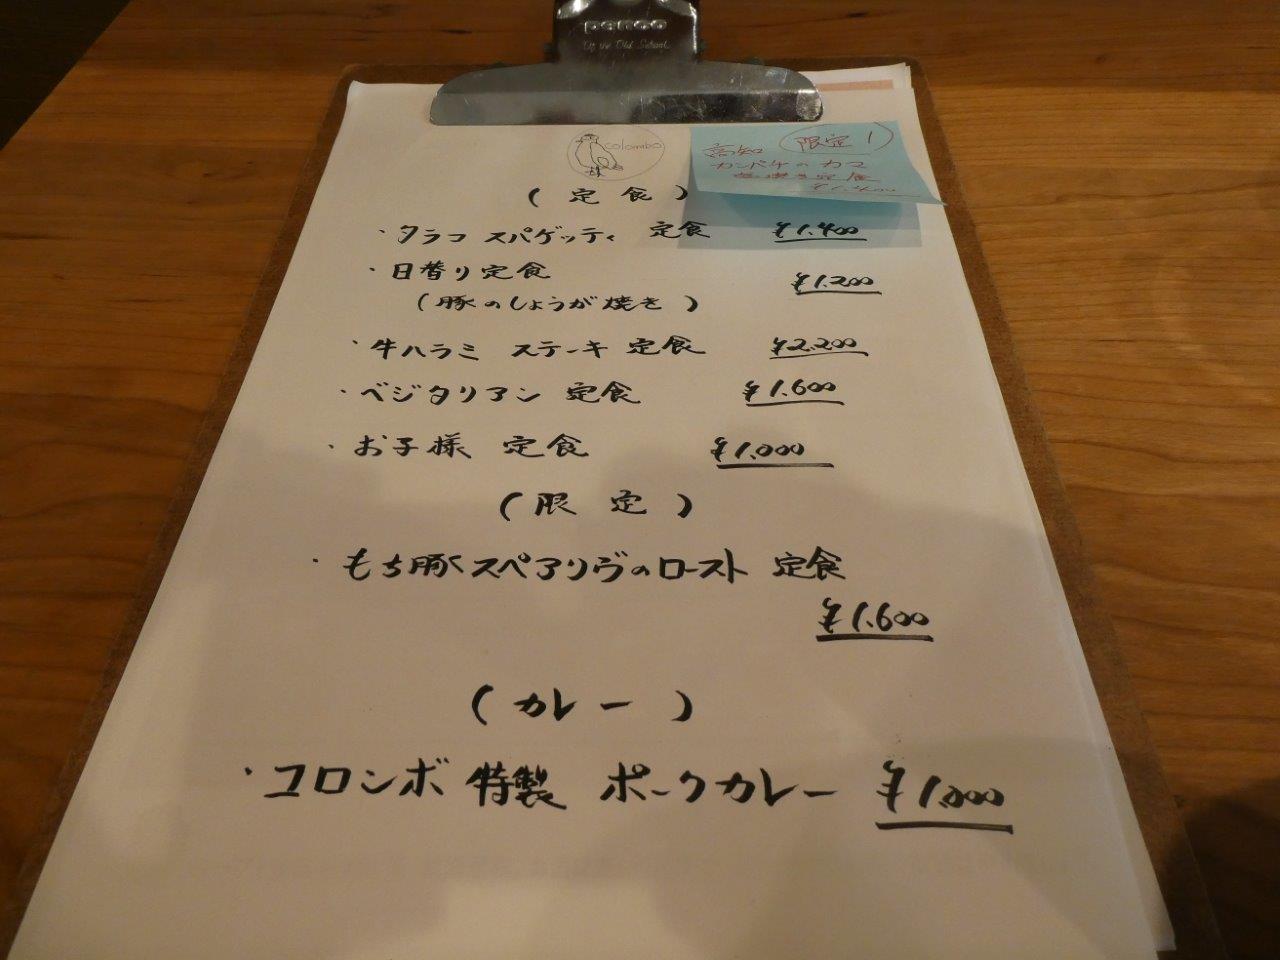 penco
colombo
高知 限定1
カンパチのカマ
塩焼き定食
(定食)
・タラコ スパゲッティ 定食 ¥1.400
・日替り定食 ¥1.200
(豚のしょうが焼き)
・牛ハラミ ステーキ 定食 ¥2.200
・ベジタリアン 定食 ¥1.600
・お子様 定食 ¥1.000
(限定)
・もち豚スペアリヴのロースト 定食
¥1.600
(カレー)
・コロンボ 特製 ポークカレー ¥1.000